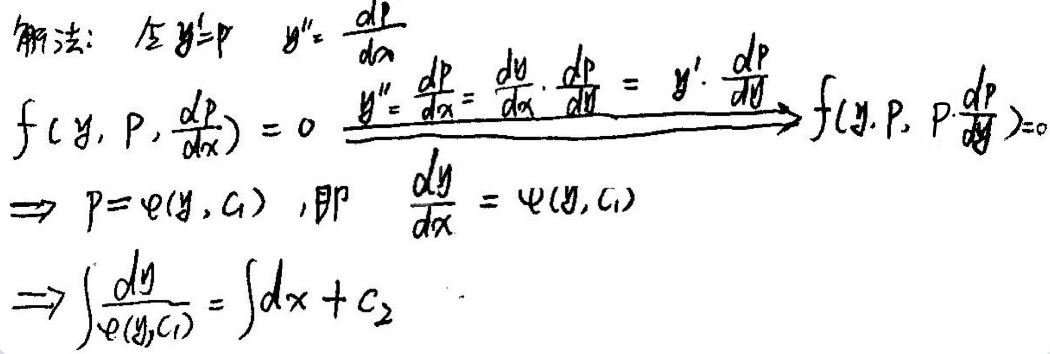 解法: 令 y'=p  y''= dp/dx
f(y, p, dp/dx) = 0 ⟹ (y''= dp/dx = dy/dx · dp/dy = y' · dp/dy) f(y, p, p·dp/dy)=0
⟹ p=φ(y, C₁) , 即 dy/dx = φ(y, C₁)
⟹ ∫ dy/φ(y,C₁) = ∫dx + C₂